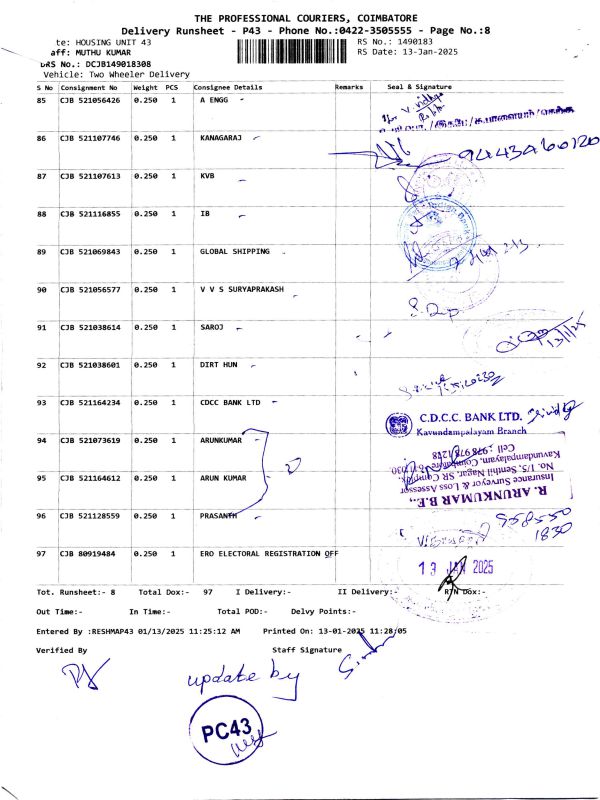 THE PROFESSIONAL COURIERS, COIMBATORE
Delivery Runsheet - P43 - Phone No.:0422-3505555 - Page No.:8
te: HOUSING UNIT 43 RS No.: 1490183
aff: MUTHU KUMAR RS Date: 13-Jan-2025
DRS No.: DCJB149018308
Vehicle: Two Wheeler Delivery
S No Consignment No Weight PCS Consignee Details Remarks Seal & Signature
85 CJB 521056426 0.250 1 A ENGG
86 CJB 521107746 0.250 1 KANAGARAJ
87 CJB 521107613 0.250 1 KVB
88 CJB 521116855 0.250 1 IB
89 CJB 521069843 0.250 1 GLOBAL SHIPPING
90 CJB 521056577 0.250 1 V V S SURYAPRAKASH
91 CJB 521038614 0.250 1 SAROJ
13/1/25
92 CJB 521038601 0.250 1 DIRT HUN
93 CJB 521164234 0.250 1 CDCC BANK LTD
C.D.C.C. BANK LTD.
Kavundampalayam Branch
94 CJB 521073619 0.250 1 ARUNKUMAR
95 CJB 521164612 0.250 1 ARUN KUMAR
R. ARUNKUMAR B.E.,
Insurance Surveyor & Loss Assessor
No. 1/5, Senthil Nagar, SR Complex,
Kavundampalayam, Coimbatore
96 CJB 521128559 0.250 1 PRASANTH
97 CJB 80919484 0.250 1 ERO ELECTORAL REGISTRATION OFF
13 JAN 2025
Tot. Runsheet:- 8 Total Dox:- 97 I Delivery:- II Delivery:- RTN Dox:-
Out Time:- In Time:- Total POD:- Delvy Points:-
Entered By :RESHMAP43 01/13/2025 11:25:12 AM Printed On: 13-01-2025 11:28:05
Verified By Staff Signature
update by
PC43